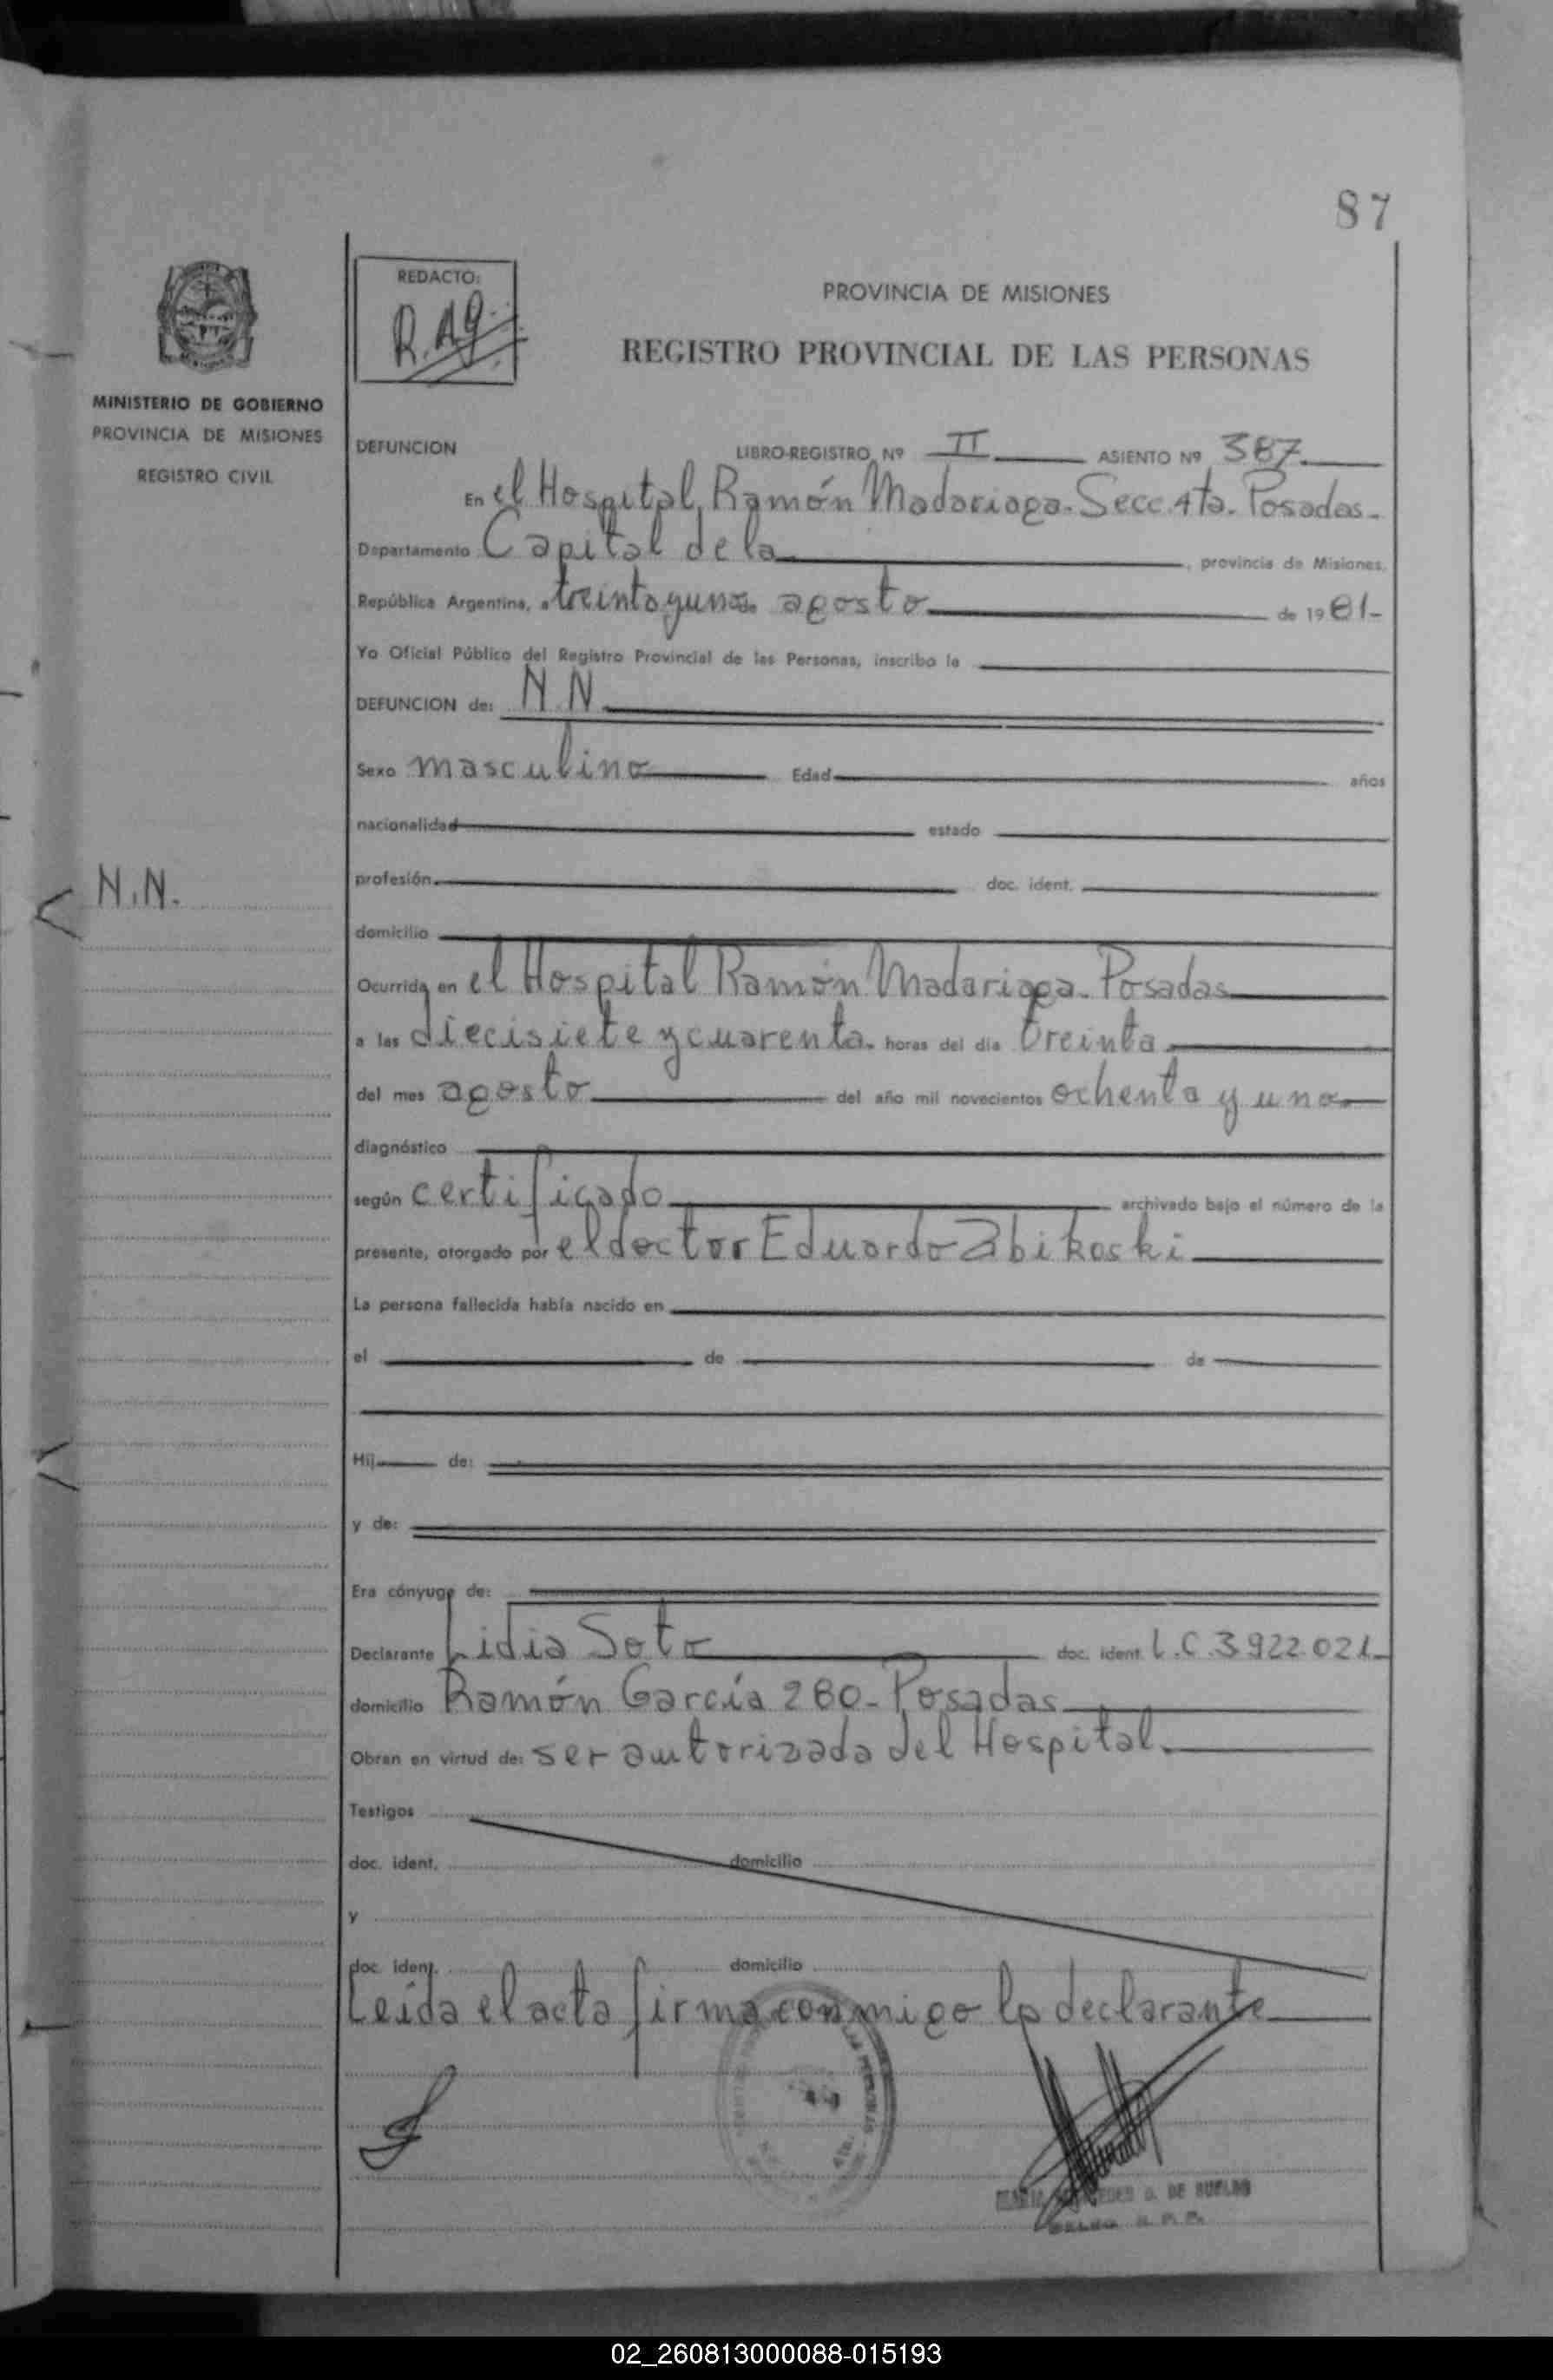 87
REDACTO:
R.A.G.
PROVINCIA DE MISIONES
REGISTRO PROVINCIAL DE LAS PERSONAS
MINISTERIO DE GOBIERNO
PROVINCIA DE MISIONES
REGISTRO CIVIL
DEFUNCION LIBRO-REGISTRO Nº II ASIENTO Nº 387
En el Hospital Ramón Madariaga. Secc. 4ta. Posadas.
Departamento Capital de la , provincia de Misiones,
República Argentina, a treinta y uno de agosto de 1981-
Yo Oficial Público del Registro Provincial de las Personas, inscribo la
DEFUNCION de: N.N
Sexo masculino Edad años
nacionalidad estado
N.N.
profesión doc. ident.
domicilio
Ocurrida en el Hospital Ramón Madariaga. Posadas
a las diecisiete y cuarenta. horas del día treinta
del mes agosto del año mil novecientos ochenta y uno
diagnóstico
según certificado archivado bajo el número de la
presente, otorgado por el doctor Eduardo Zbikoski
La persona fallecida había nacido en
el de de
Hij de:
y de:
Era cónyuge de:
Declarante Lidia Soto doc. ident. L.C. 3.922.021
domicilio Ramón García 280- Posadas
Obran en virtud de: ser autorizada del Hospital.
Testigos
doc. ident. domicilio
y
doc. ident. domicilio
Leída el acta firma conmigo la declarante
DE
R. P. P.
02_260813000088-015193